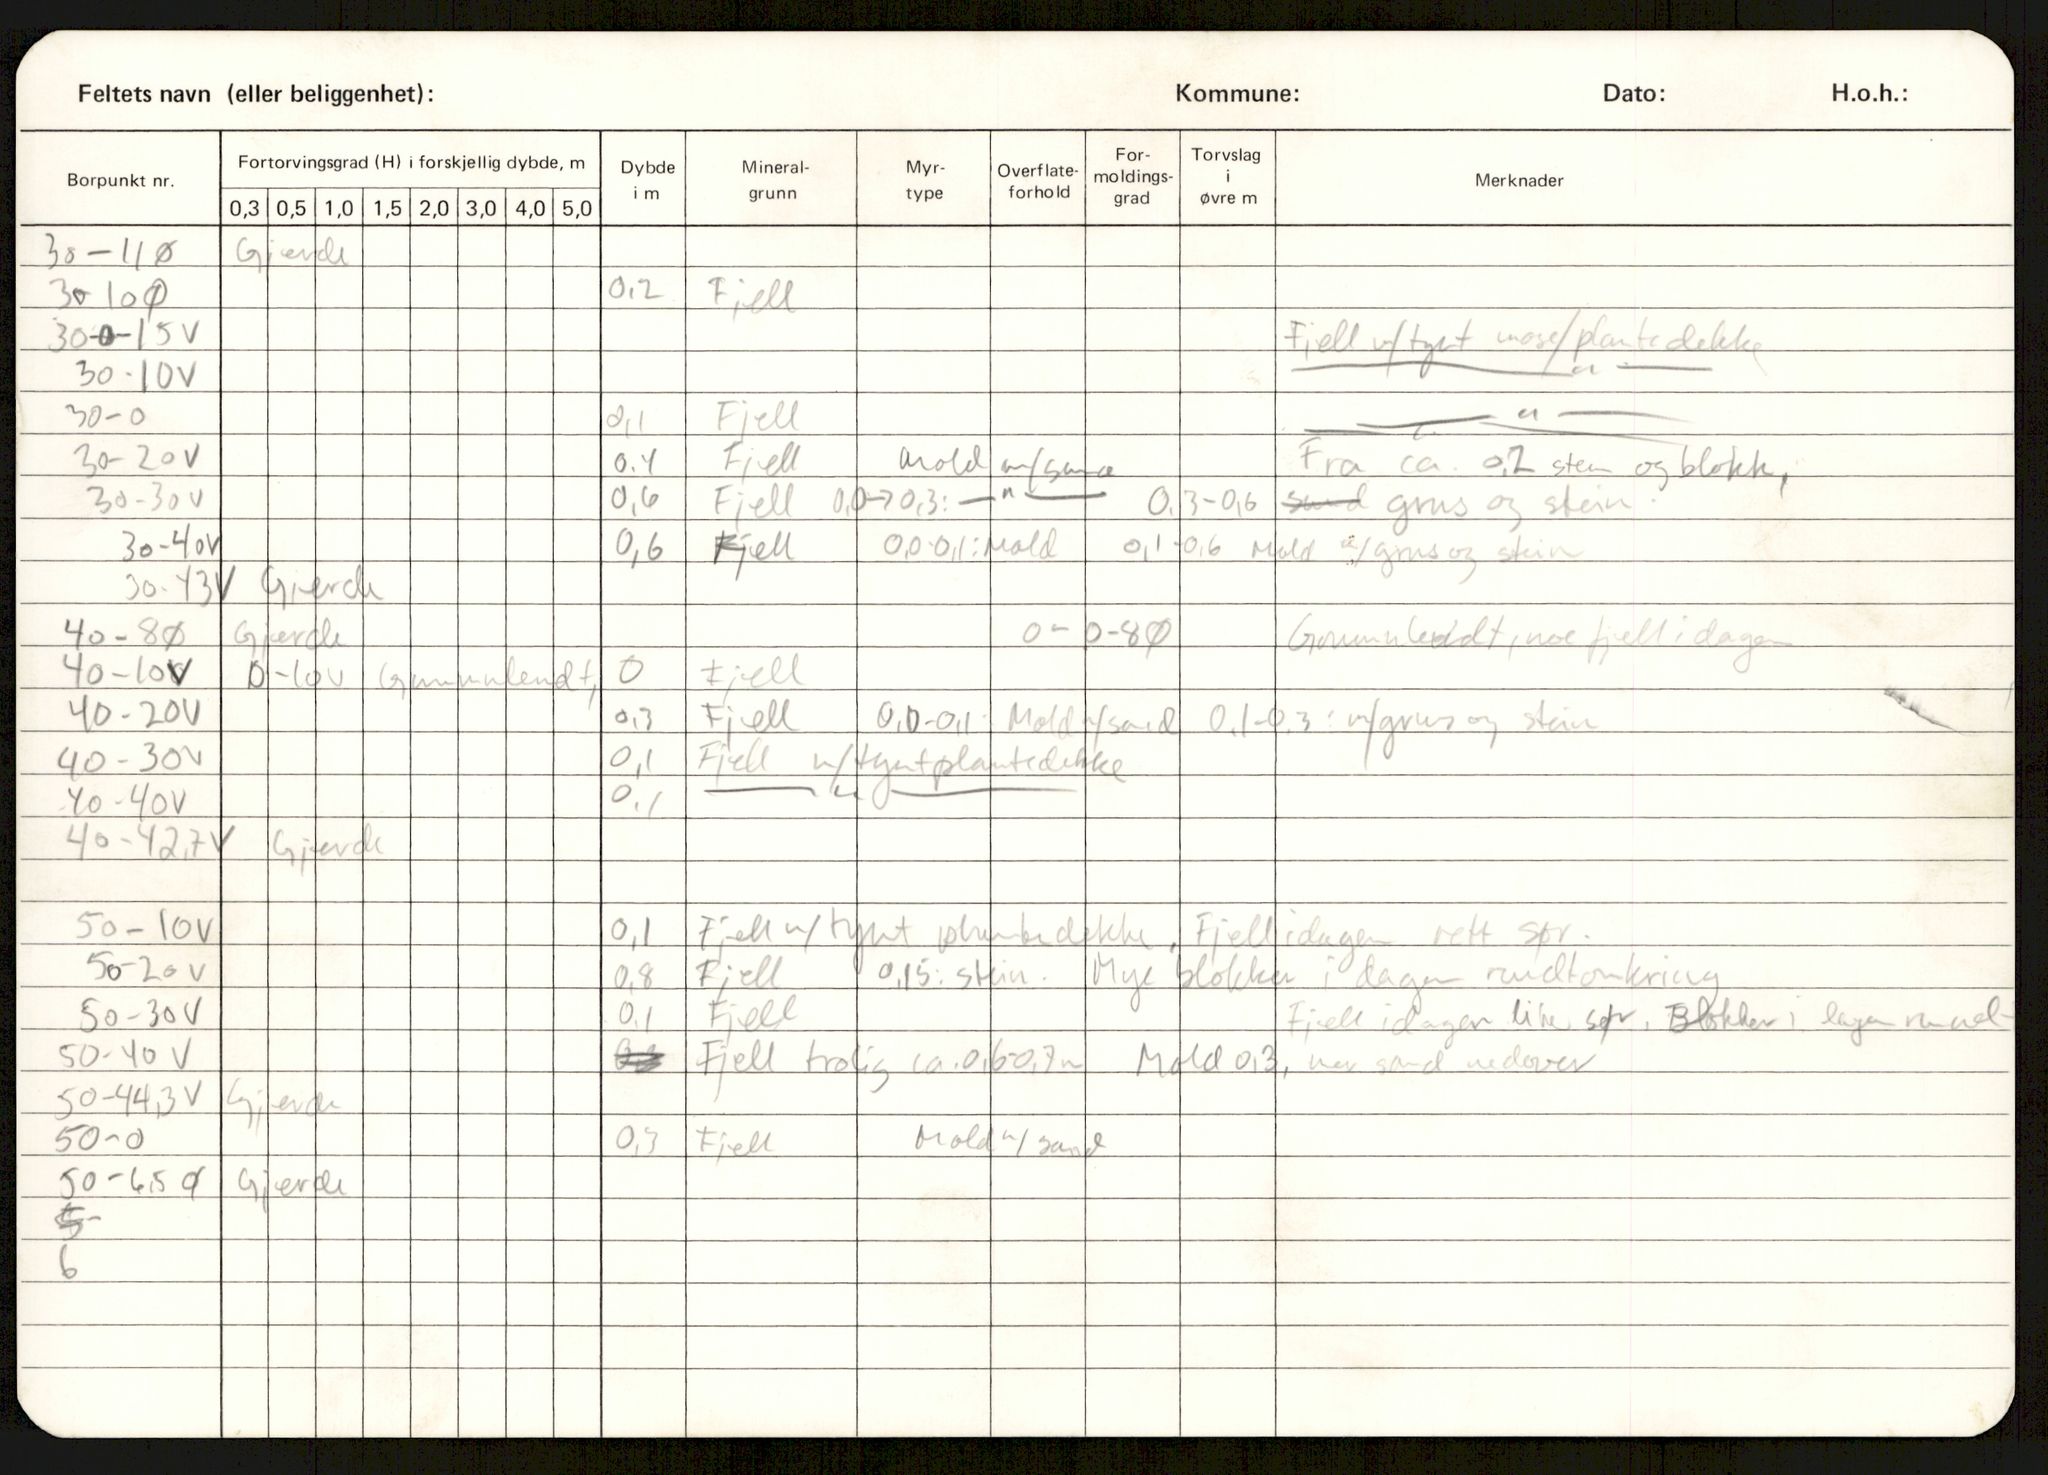 Feltets navn (eller beliggenhet): Kommune: Dato: H.o.h.:
Borpunkt nr. Fortorvingsgrad (H) i forskjellig dybde, m Dybde i m Mineral-grunn Myr-type Overflate-forhold For-moldings-grad Torvslag i øvre m Merknader
0,3 0,5 1,0 1,5 2,0 3,0 4,0 5,0
30-11Ø Gjerde
30-10Ø 0,2 Fjell
30-0-15V Fjell m/tynt mose/plantedekke
30-10V — " —
30-0 0,1 Fjell — " —
30-20V 0,4 Fjell Mold m/ Fra ca. 0,2 stein og blokk,
30-30V 0,6 Fjell 0,0→0,3: — " — 0,3-0,6 sand grus og stein.
30-40V 0,6 Fjell 0,0-0,1: Mold 0,1-0,6 Mold m/grus og stein
30-43V Gjerde
40-8Ø Gjerde 0-0-8Ø Grunnlendt, noe fjell i dagen
40-10V 0-10V Grunnlendt, 0 Fjell
40-20V 0,3 Fjell 0,0-0,1: Mold m/sand 0,1-0,3: m/grus og stein
40-30V 0,1 Fjell m/tynt plantedekke
40-40V 0,1 — " —
40-42,7V Gjerde
50-10V 0,1 Fjell m/tynt plantedekke, Fjell i dagen rett sør.
50-20V 0,8 Fjell 0,15: stein. Mye blokker i dagen rundtomkring
50-30V 0,1 Fjell Fjell i dagen like sør, Blokker i dagen rund-
50-40V Fjell trolig ca. 0,6-0,7m Mold 0,3, mer sand nedover
50-44,3V Gjerde
50-0 0,3 Fjell Mold m/sand
50-6,5Ø Gjerde
5-
6